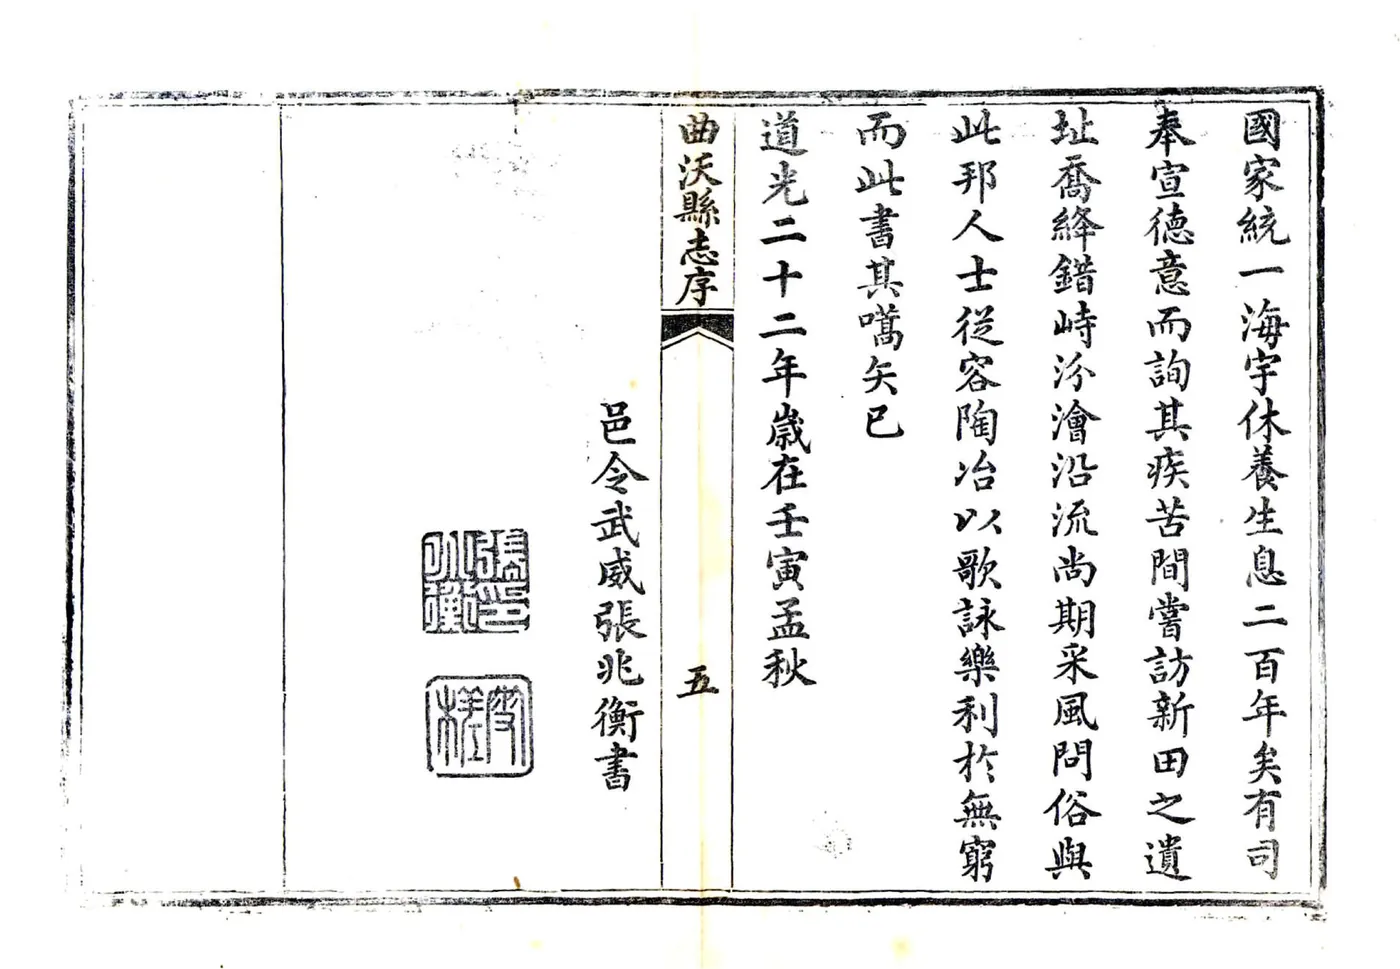 國家統一海宇休養生息二百年矣有司
奉宣德意而詢其疾苦間嘗訪新田之遺
址喬絳錯峙汾澮沿流尚期采風問俗與
此邦人士從容陶冶以歌詠樂利於無窮
而此書其嚆矢已
道光二十二年歲在壬寅孟秋
曲沃縣志序
五
邑令武威張兆衡書
張兆衡印